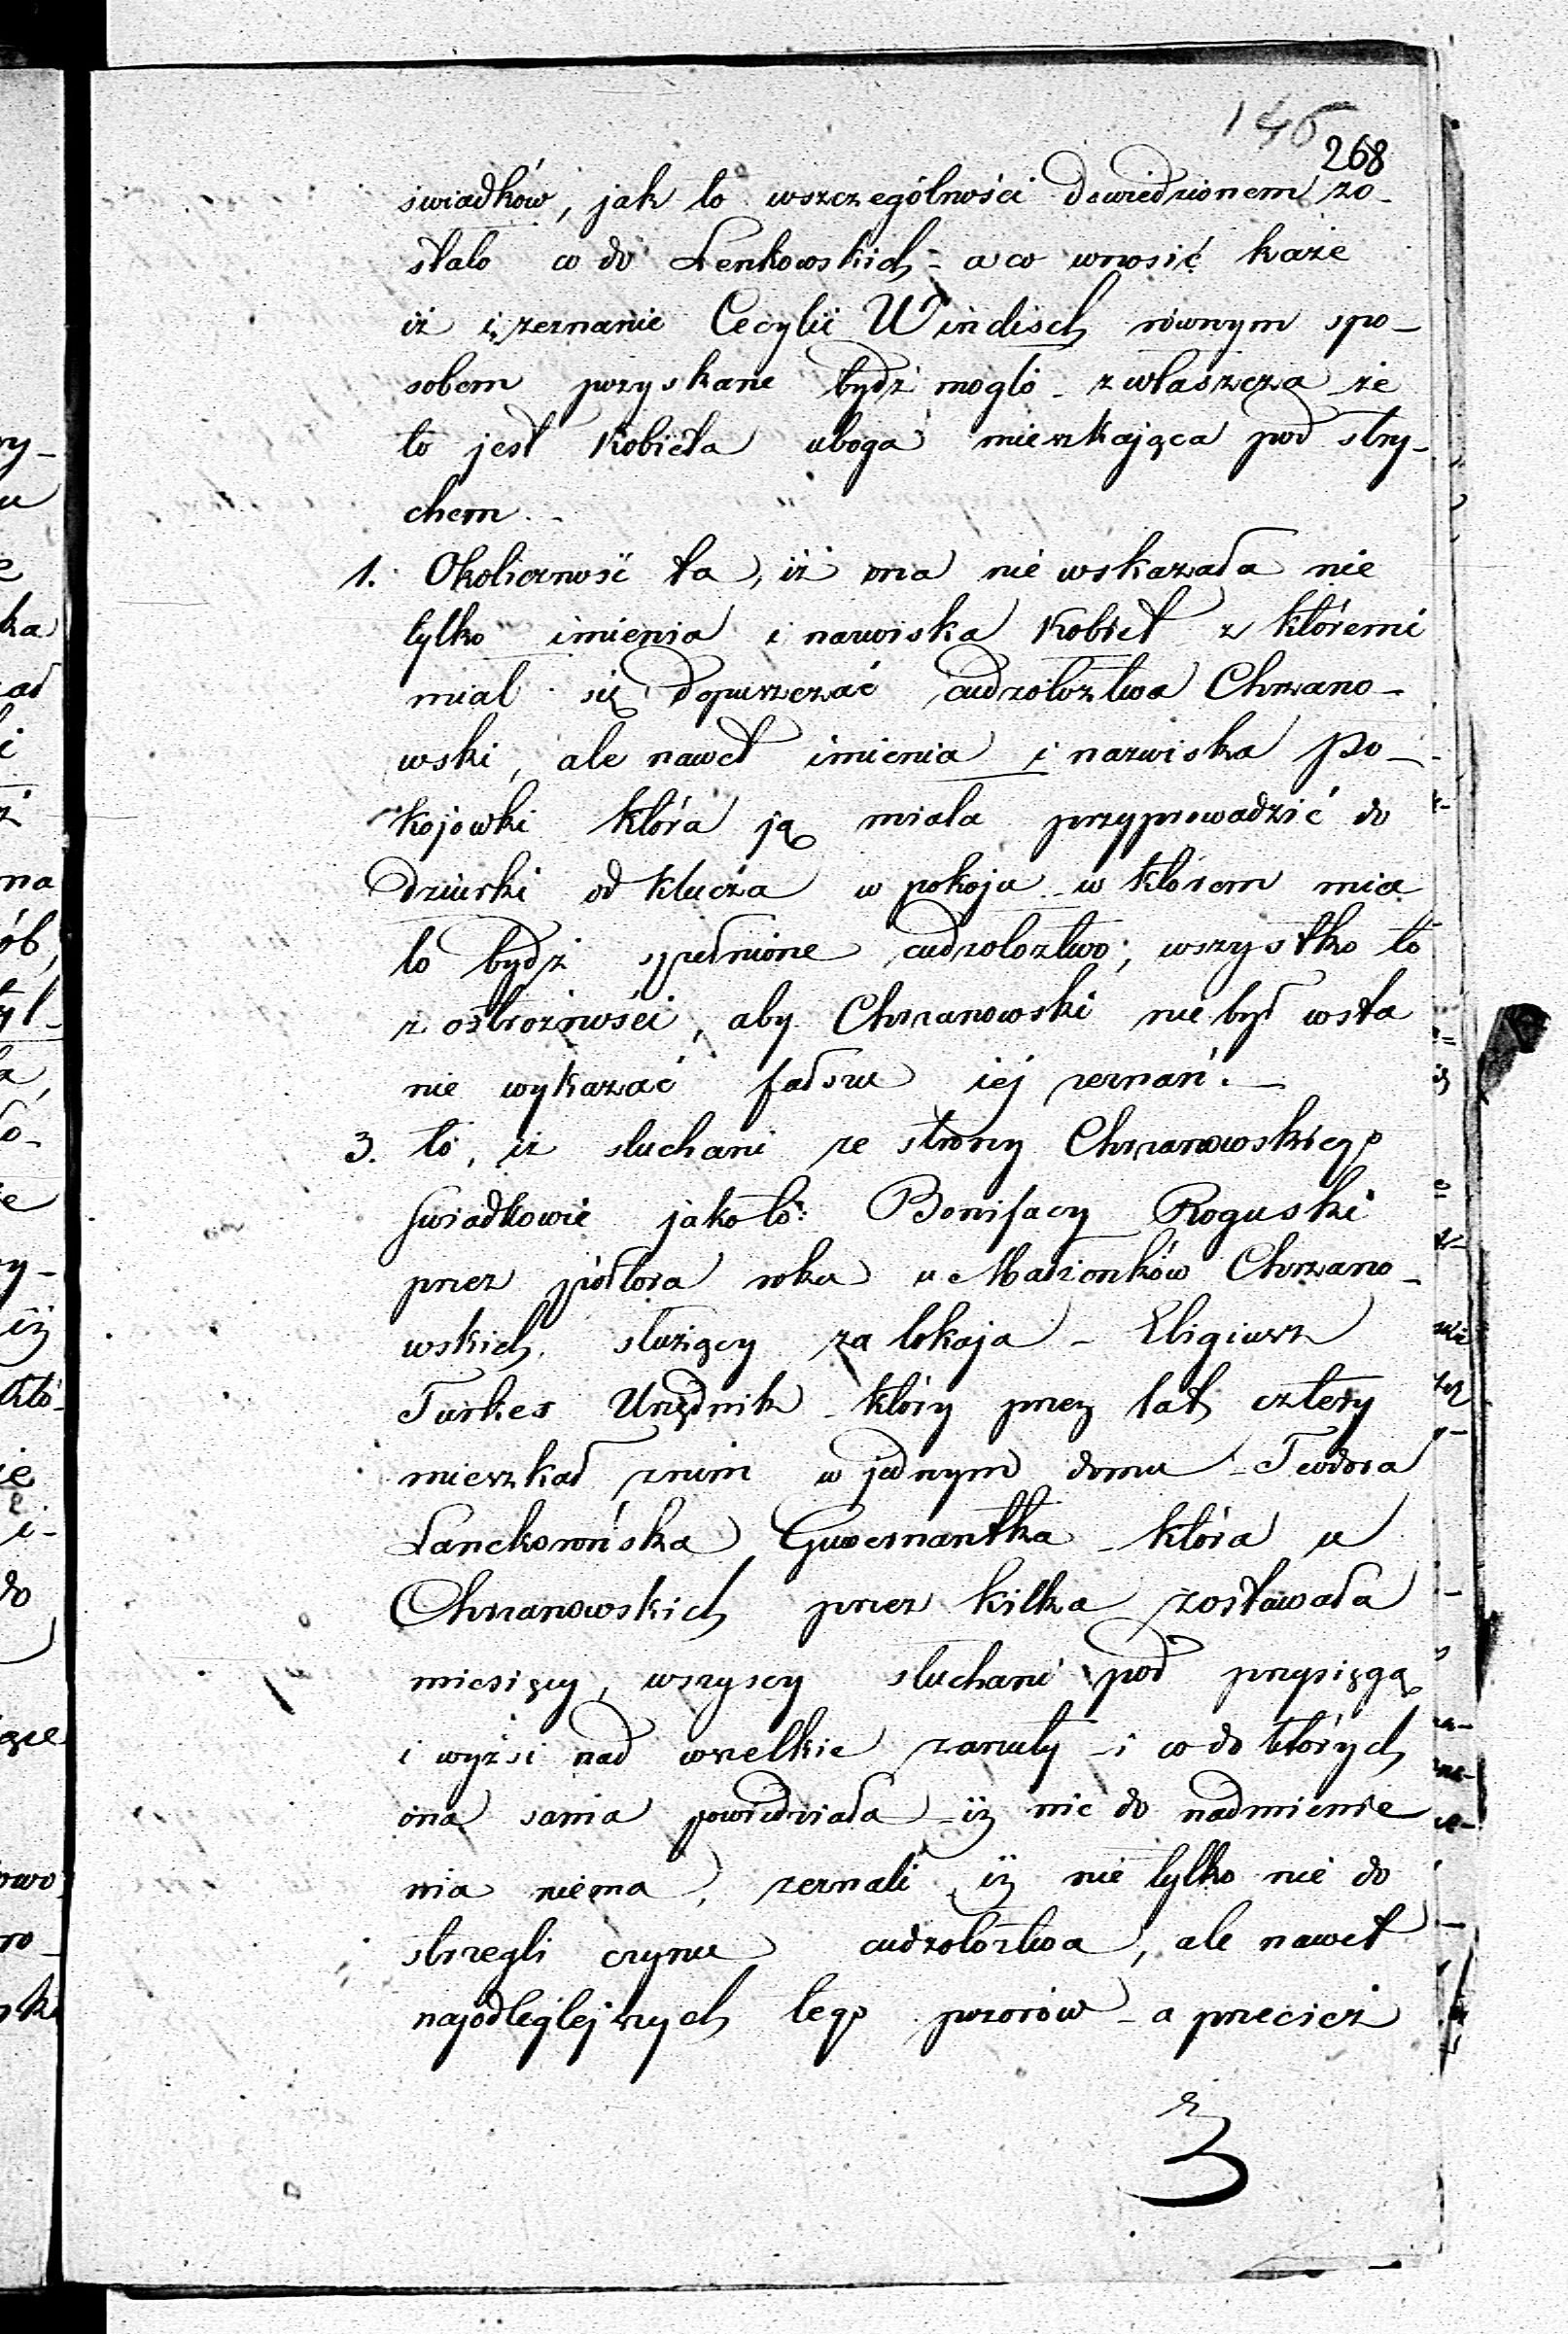 146
268
świadków, jak to wszczególności dowiedzionem zo-
stało co do Lenkowskich - a co wnosić każe
iż i zeznanie Cecylii Windisch równym spo-
sobem pozyskane bydź mogło - zwłaszcza że
to jest Kobieta uboga mieszkająca pod stry-
chem. -
1. Okoliczność ta, iż ona nie wskazała nie
tylko imienia i nazwiska Kobiet z któremi
miał się dopuszczać cudzołoztwa Chrzano-
wski, ale nawet imienia i nazwiska po-
kojowki która ją miała przyprowadzić do
dziurki od klucza w pokoju - w którem mia
ło bydź spełnione cudzołoztwo; wszystko to
z ostrożności, aby Chrzanowski nie był wsta
nie wykazać fałszu iéj zeznań. -
3. to, iż słuchani ze strony Chrzanowskiego
Swiadkowie jako to: Bonifacy Roguski
przez półtora roku u Małżonków Chrzano-
wskich, służący za lokaja - Eligiusz
Turkes Urzędnik - który przez lat cztery
mieszkał znim w jednym domu - Teodora
Lanckorońska Guwernantka - która u
Chrzanowskich przez kilka zostawała
miesięcy, wszyscy słuchani pod przysięgą
i wyżsi nad wszelkie zarzuty - i co do których
ona sama powiedziała - iż nic do nadmienie
nia niema, zeznali iż nie tylko nie do
strzegli czynu cudzołoztwa, ale nawet
najodleglejszych tego pozorów - a przecież